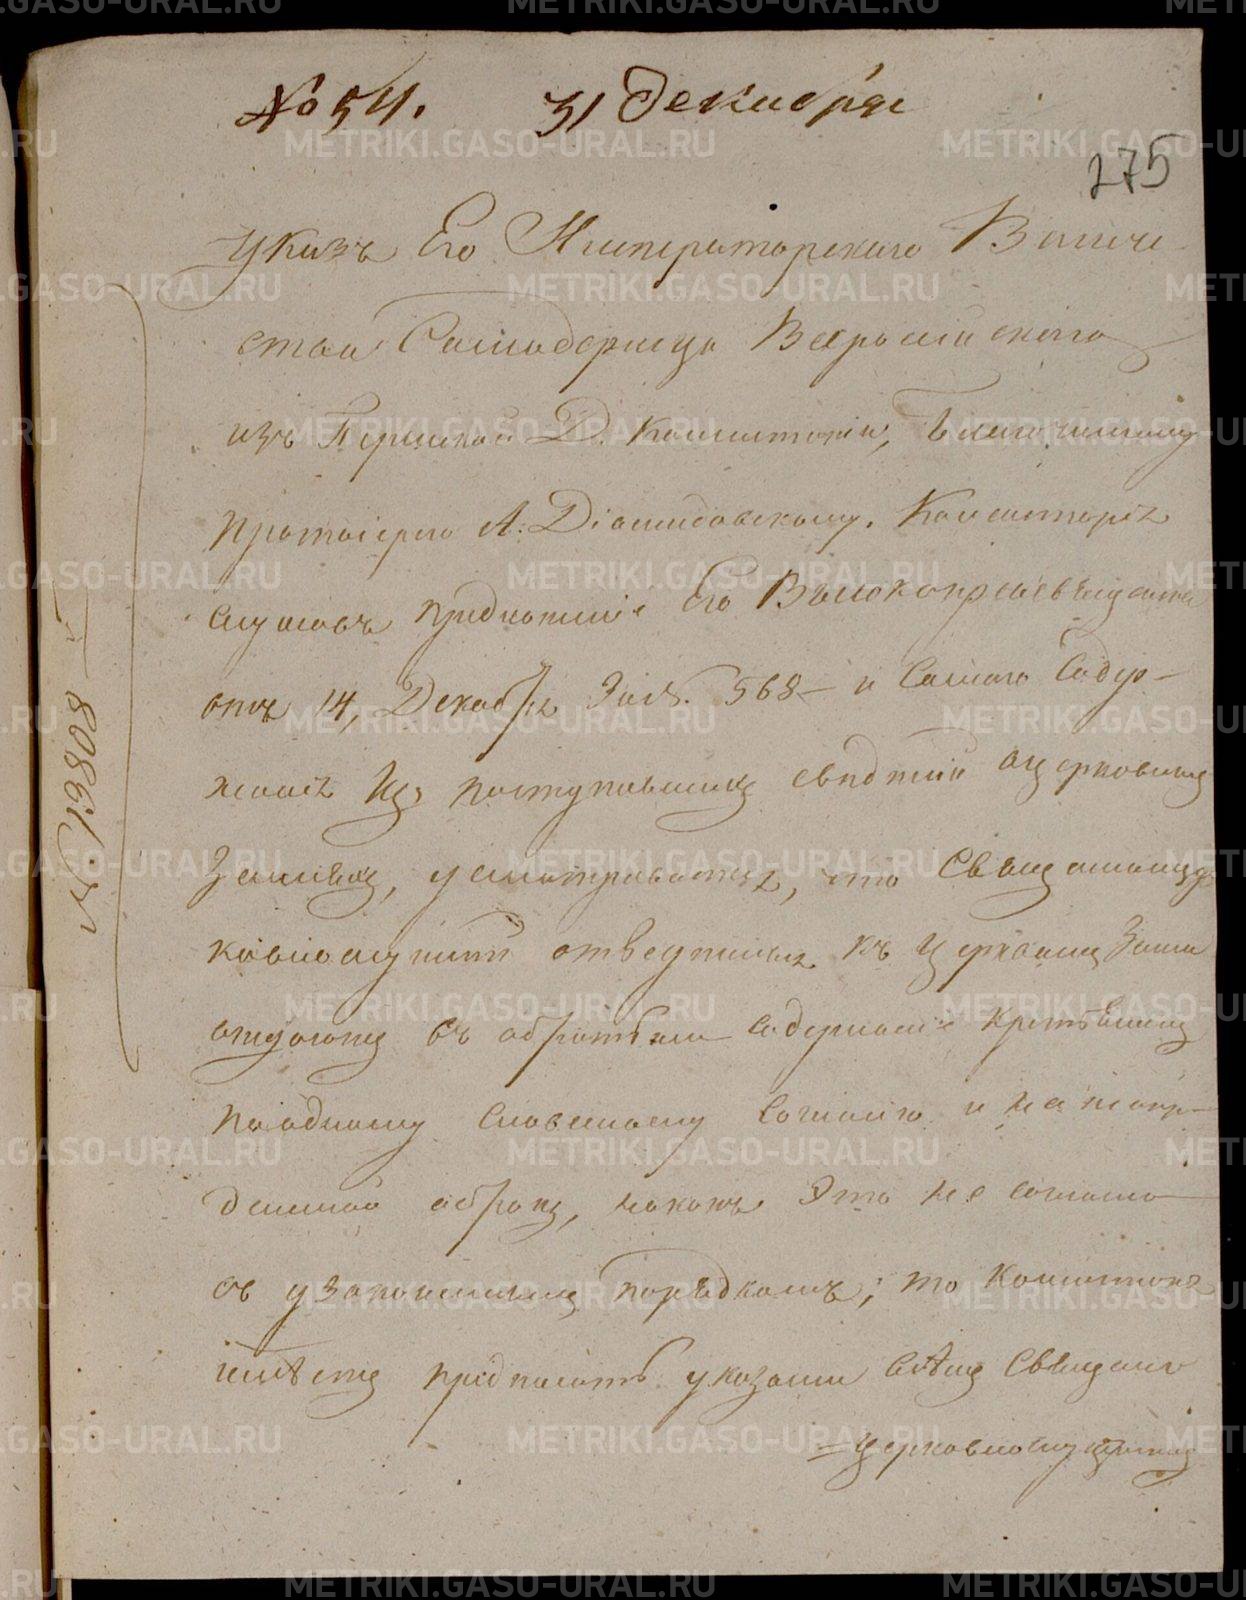 № 54. 31 Декабря
275
Указъ Его Императорскаго Величе
ства Самодержца Всероссійскаго
изъ Пермской Д. Консисторіи, Благочинному
Протоіерею А. Діомидовскому. Консисторія
слушавъ предложеніе Его Высокопреосвященства
отъ 14, Декабря за №. 568 – и самаго Содер-
жанія Изъ поступившихъ свѣдѣній о церковныхъ
Земляхъ, усматривается, что Священноцер
ковнослужит отведенныя къ церквамъ Земли
отдаютъ въ обработыв содержаніе крестьянамъ
по одному словесному согласію и на неопре-
деленной оброкъ, но какъ это не согласно
съ узаконеннымъ порядкомъ; то Консисторія
имѣетъ предписать указами всѣмъ Священно
=церковнослужителямъ
№. 13808
METRIKI.GASO-URAL.RU